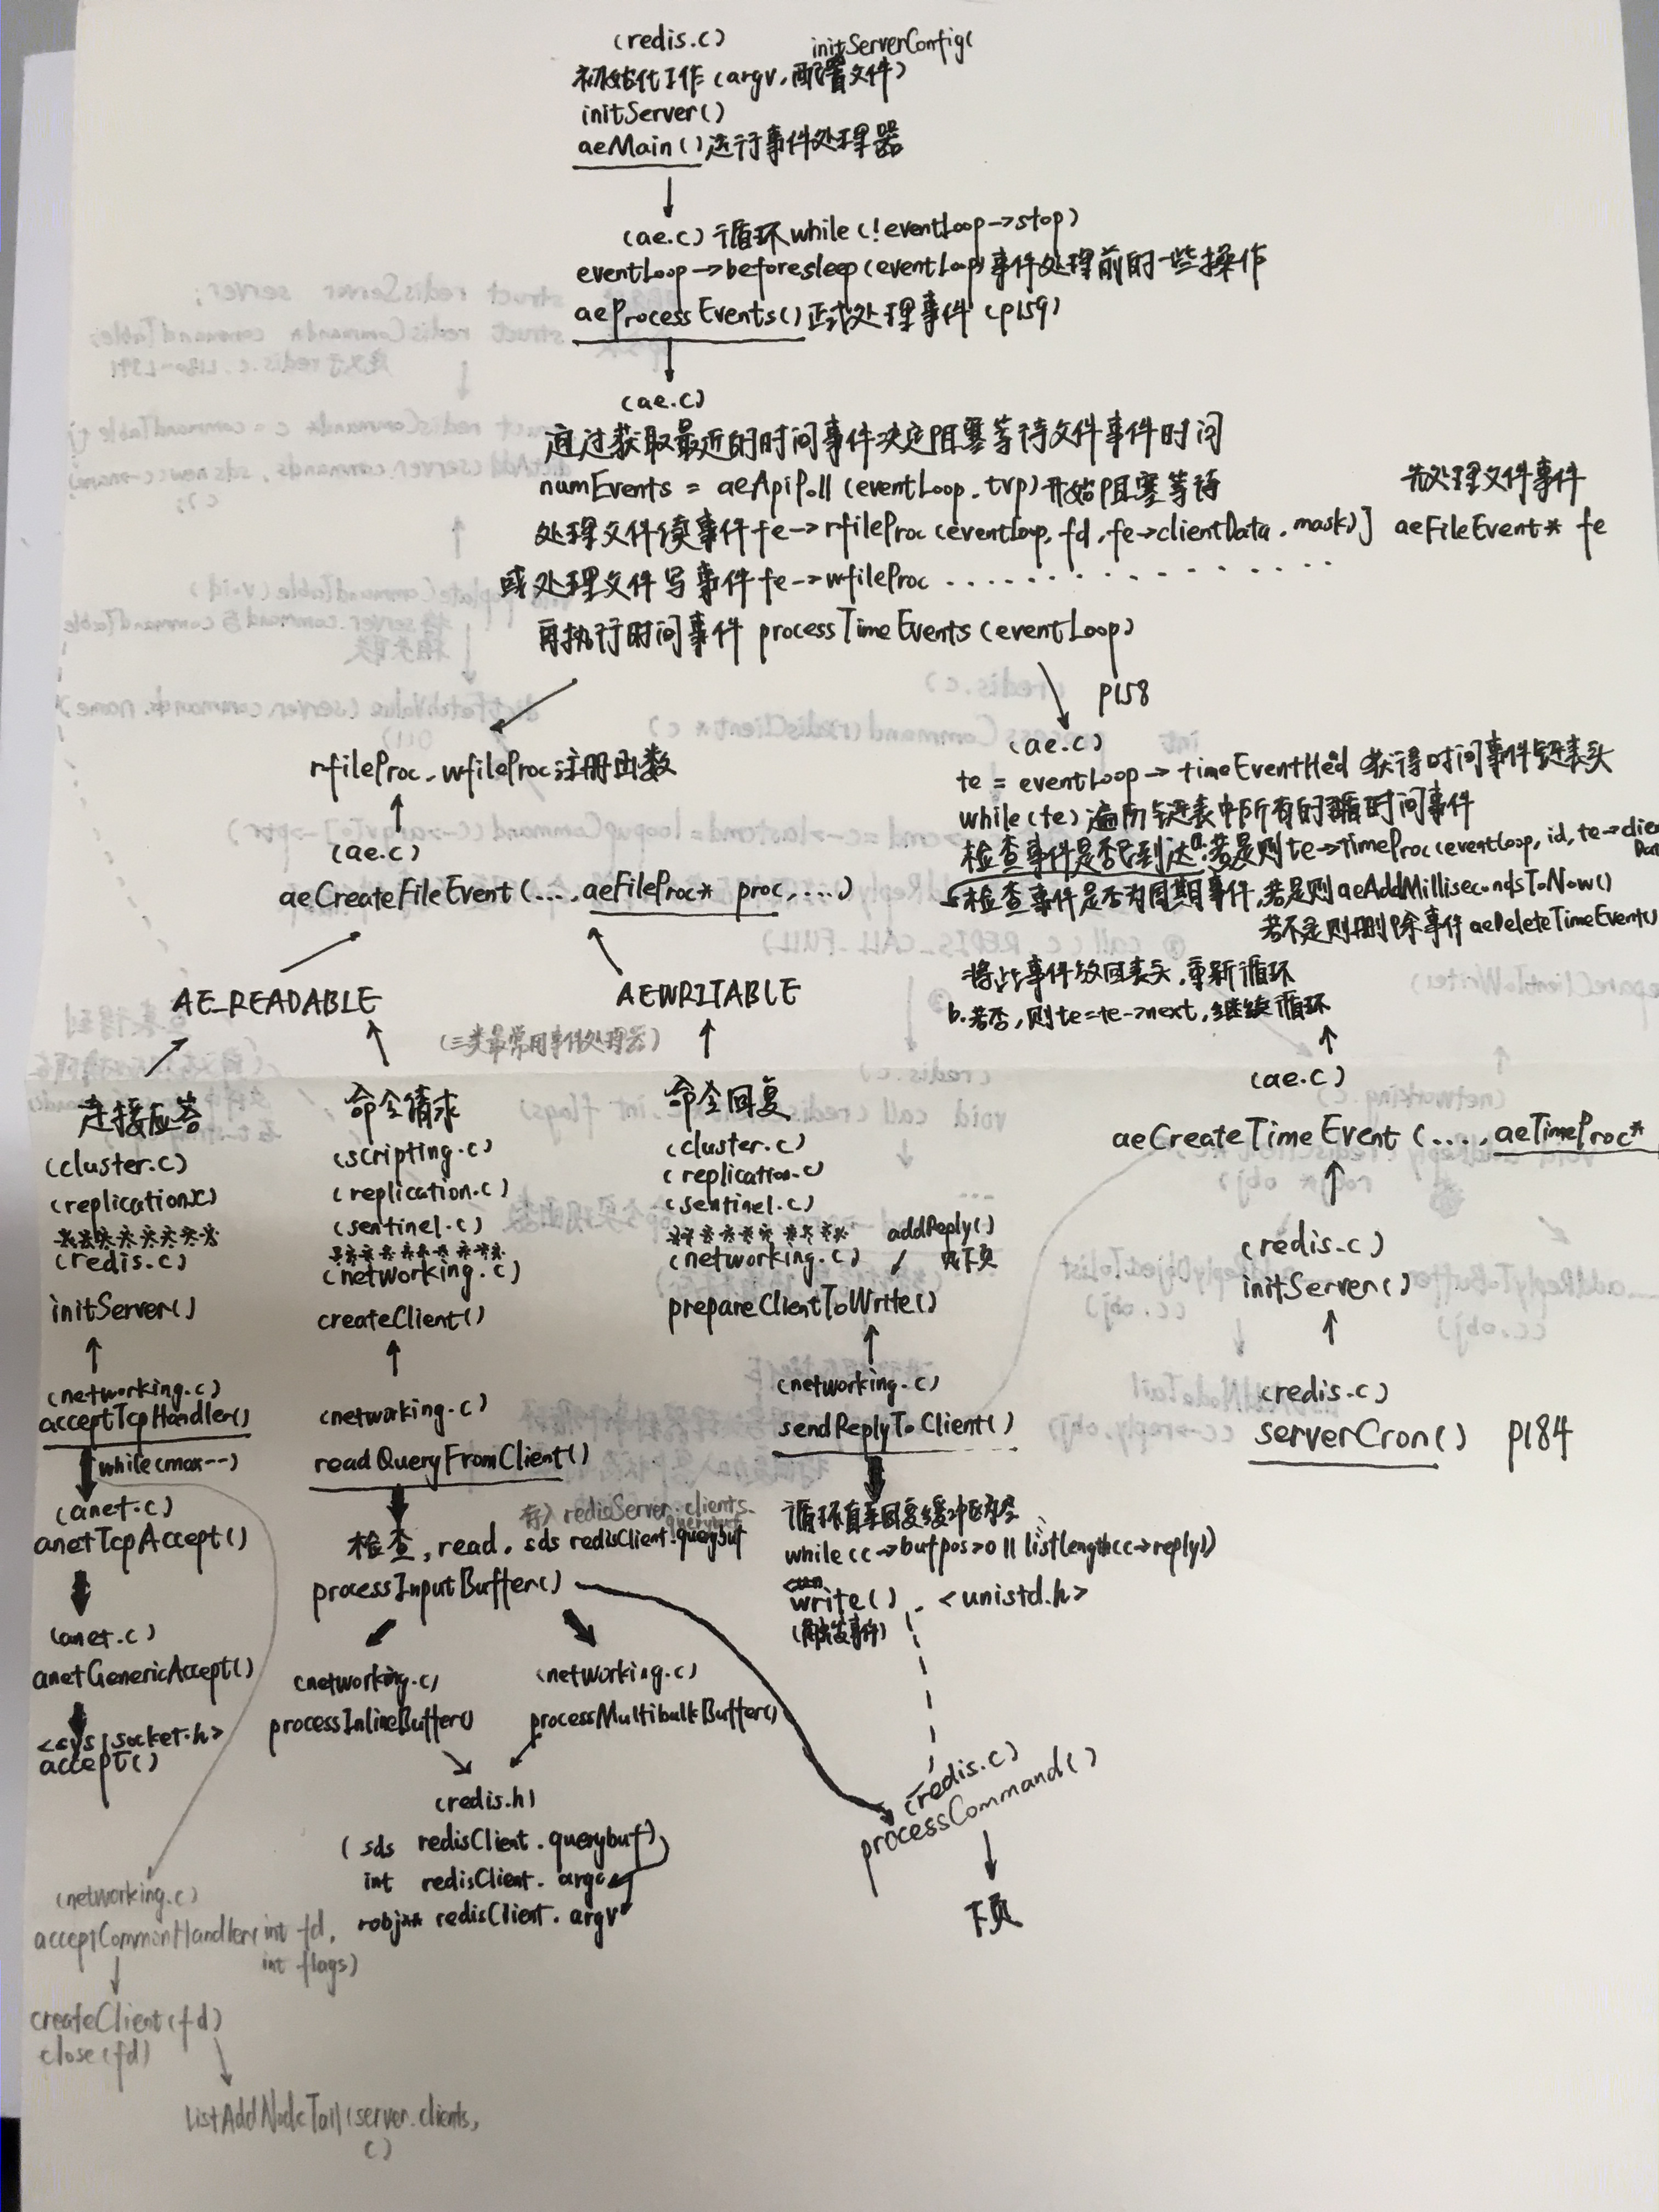 (redis.c)
initServerConfig(
初始化工作(argv,配置文件)
initServer()
aeMain()运行事件处理器
(ae.c) 循环while(!eventLoop->stop)
eventLoop->beforesleep(eventLoop)事件处理前的一些操作
aeProcessEvents()正式处理事件 (p159)
(ae.c)
通过获取最近的时间事件决定阻塞等待文件事件时间
numEvents = aeApiPoll(eventLoop,tvp)开始阻塞等待
先处理文件事件
处理文件读事件fe->rfileProc(eventLoop,fd,fe->clientData,mask)] aeFileEvent* fe
或处理文件写事件fe->wfileProc ...............
再执行时间事件 processTimeEvents(eventLoop)
p158
rfileProc,wfileProc注册函数
(ae.c)
aeCreateFileEvent(...,aeFileProc* proc,...)
AE_READABLE
AEWRITABLE
(三类最常用事件处理器)
(ae.c)
te = eventLoop->timeEventHed 获得时间事件链表头
while(te)遍历链表中所有的时间事件
检查事件是否已到达a.若是则te->timeProc(eventLoop,id,te->clie
Dat
检查事件是否为周期事件,若是则aeAddMillisecondsToNow()
若不是则删除事件aeDeleteTimeEvent()
将此事件放回表头,重新循环
b.若否,则te=te->next,继续循环
(ae.c)
aeCreateTimeEvent(....,aeTimeProc*
(redis.c)
initServer()
(redis.c)
serverCron() p184
连接应答
(cluster.c)
(replication.c)
********
(redis.c)
initServer()
(networking.c)
acceptTcpHandler()
while(max--)
(anet.c)
anetTcpAccept()
(anet.c)
anetGenericAccept()
<sys/socket.h>
accept()
(networking.c)
acceptCommonHandler(int fd,
int flags)
createClient(fd)
close(fd)
listAddNodeTail(server.clients,
c)
命令请求
(scripting.c)
(replication.c)
(sentinel.c)
*********
(networking.c)
createClient()
(networking.c)
readQueryFromClient()
存入redisServer.clients.
querybuf
检查,read, sds redisClient.querybuf
processInputBuffer()
(networking.c)
processInlineBuffer()
(networking.c)
processMultibulkBuffer()
(redis.h)
(sds redisClient.querybuf)
int redisClient.argc
robj** redisClient.argv
命令回复
(cluster.c)
(replication.c)
(sentinel.c)
*********
(networking.c)
addReply()
见下页
prepareClientToWrite()
(networking.c)
sendReplyToClient()
循环直至回复缓冲区为空
while(c->bufpos>0||listlength(c->reply))
write() <unistd.h>
(触发事件)
(redis.c)
processCommand()
下页